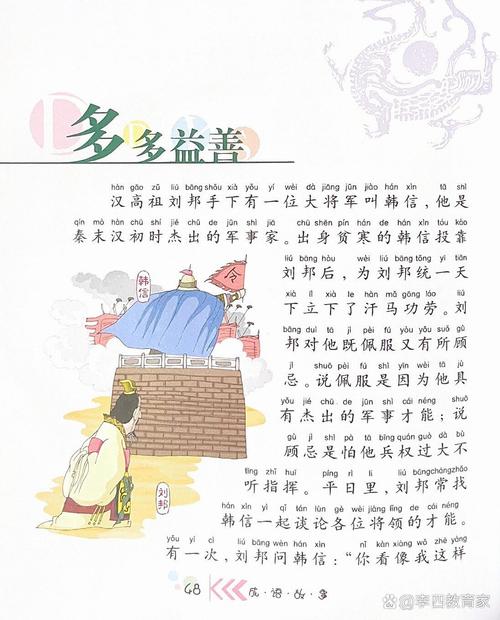 多多益善
hàn gāo zǔ liú bāng shǒu xià yǒu yí wèi dà jiāng jūn jiào hán xìn tā shì
汉高祖刘邦手下有一位大将军叫韩信，他是
qín mò hàn chū shí jié chū de jūn shì jiā chū shēn pín hán de hán xìn tóu kào
秦末汉初时杰出的军事家。出身贫寒的韩信投靠
liú bāng hòu wèi liú bāng tǒng yì tiān
刘邦后，为刘邦统一天
xià lì xià le hàn mǎ gōng láo liú
下立下了汗马功劳。刘
bāng duì tā jì pèi fú yòu yǒu suǒ gù
邦对他既佩服又有所顾
jì shuō pèi fú shì yīn wèi tā jù
忌。说佩服是因为他具
yǒu jié chū de jūn shì cái néng shuō
有杰出的军事才能；说
gù jì shì pà tā bīng quán guò dà bù
顾忌是怕他兵权过大不
tīng zhǐ huī píng rì lǐ liú bāng cháng zhǎo
听指挥。平日里，刘邦常找
hán xìn yì qǐ tán lùn gè wèi jiàng lǐng de cái néng
韩信一起谈论各位将领的才能。
yǒu yí cì liú bāng wèn hán xìn nǐ kàn xiàng wǒ zhè yàng
有一次，刘邦问韩信：“你看像我这样
韩信
令
刘邦
48
成·语·故·事
@李四教育家